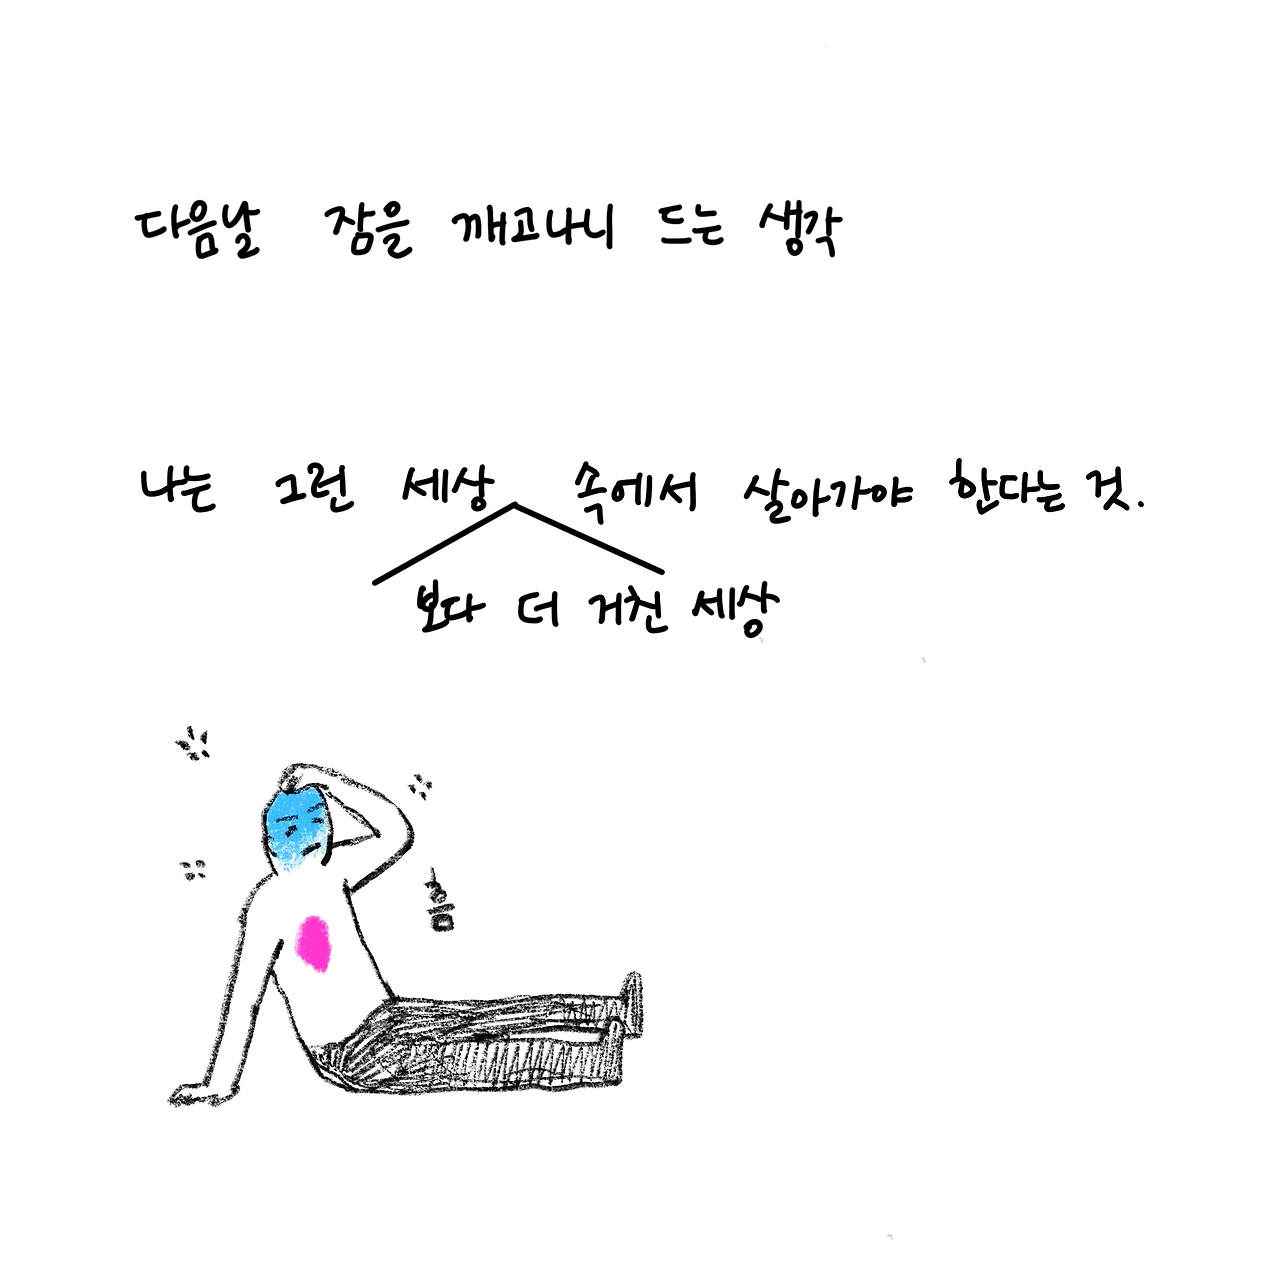 다음날 잠을 깨고나니 드는 생각
나는 그런 세상 속에서 살아가야 한다는 것.
보다 더 거친 세상
흠